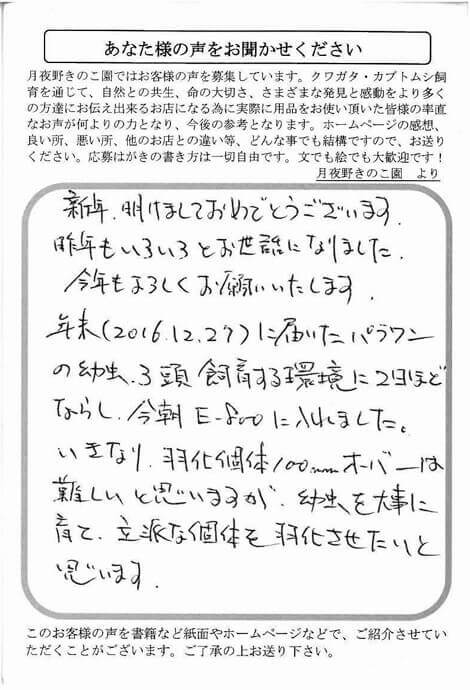 あなた様の声をお聞かせください
月夜野きのこ園ではお客様の声を募集しています。クワガタ・カブトムシ飼
育を通じて、自然との共生、命の大切さ、さまざまな発見と感動をより多く
の方達にお伝え出来るお店になる為に実際に用品をお使い頂いた皆様の率直
なお声が何よりの力となり、今後の参考となります。ホームページの感想、
良い所、悪い所、他のお店との違い等、どんな事でも結構ですので、お送り
ください。応募はがきの書き方は一切自由です。文でも絵でも大歓迎です！
月夜野きのこ園 より
新年、明けましておめでとうございます。
昨年もいろいろとお世話になりました。
今年もよろしくお願いいたします。
年末(2016.12.27)に届いたパラワン
の幼虫、3頭 飼育する環境に2日ほど
ならし、今朝 E-800に入れました。
いきなり、羽化個体100mmオーバーは
難しいと思いますが、幼虫を大事に
育て、立派な個体を羽化させたいと
思います。
このお客様の声を書籍など紙面やホームページなどで、ご紹介させてい
ただくことがございます。ご了承の上お送り下さい。